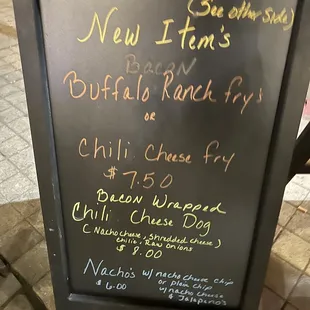 (See other side)
New Item's
Bacon
Buffalo Ranch fry's
or
Chili Cheese fry
$7.50
Bacon Wrapped
Chili Cheese Dog
(Nacho cheese, shredded cheese,
chili, Raw onions)
$8.00
Nacho's w/ nacho cheese chip
$6.00 or plain chip
w/ nacho cheese
& Jalapeño's